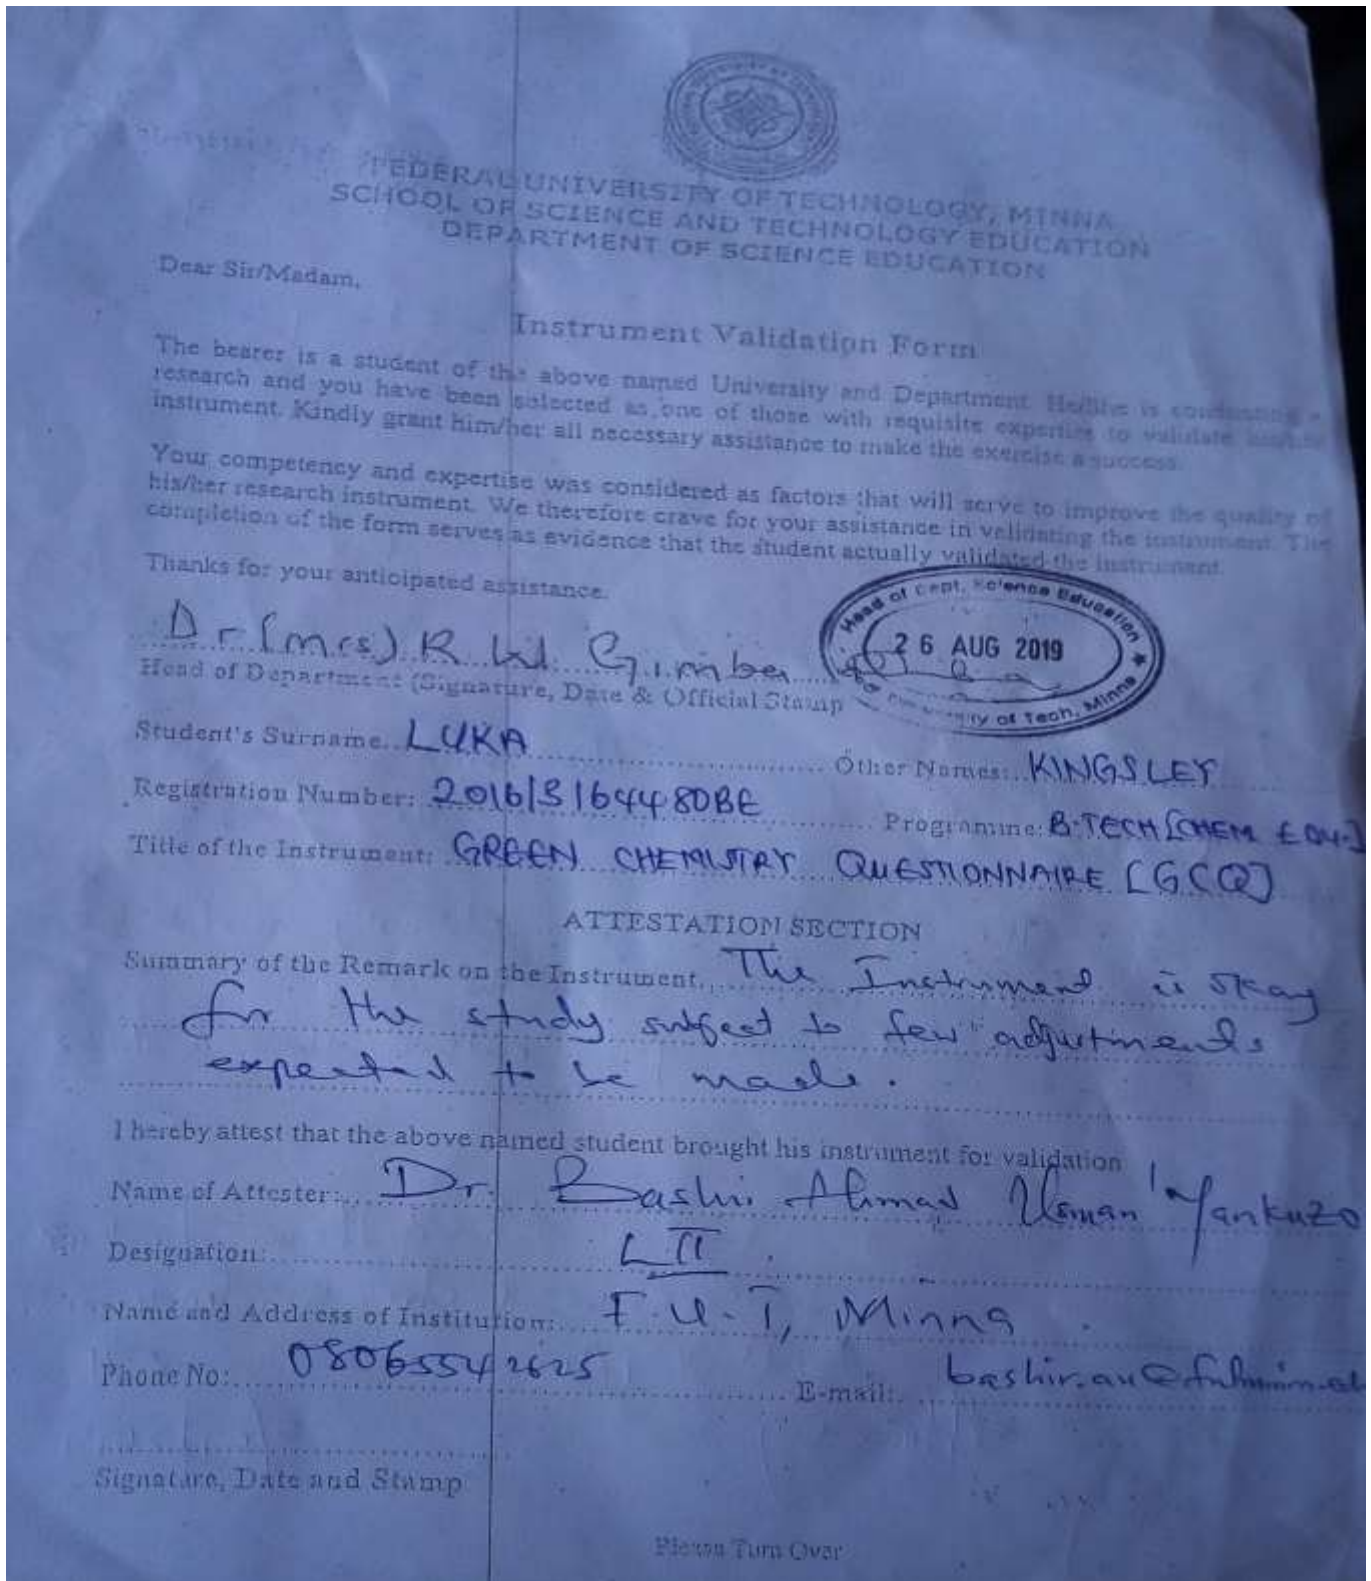 FEDERAL UNIVERSITY OF TECHNOLOGY, MINNA
SCHOOL OF SCIENCE AND TECHNOLOGY EDUCATION
DEPARTMENT OF SCIENCE EDUCATION
Dear Sir/Madam,
Instrument Validation Form
The bearer is a student of the above named University and Department. He/She is conducting a
research and you have been selected as one of those with requisite expertise to validate
instrument. Kindly grant him/her all necessary assistance to make the exercise a success.
Your competency and expertise was considered as factors that will serve to improve the quality of
his/her research instrument. We therefore crave for your assistance in validating the instrument. The
completion of the form serves as evidence that the student actually validated the instrument.
Thanks for your anticipated assistance.
Head of Dept. Science Education
26 AUG 2019
of Tech, Minna
Dr (Mrs) R. W. Gimba
Head of Department (Signature, Date & Official Stamp
Student's Surname LUKA Other Names: KINGSLEY
Registration Number: Programme: B.TECH [CHEM EDU.]
Title of the Instrument: GREEN CHEMISTRY QUESTIONNAIRE [GCQ]
ATTESTATION SECTION
Summary of the Remark on the Instrument The Instrument is okay
for the study subject to few adjustments
expected to be made.
I hereby attest that the above named student brought his instrument for validation
Name of Attester: Dr. Bashir Ahmad Usman 'Yankuzo
Designation: L II
Name and Address of Institution: F.U.T, Minna
Phone No: 08065542625 E-mail:
Signature, Date and Stamp
Please Turn Over